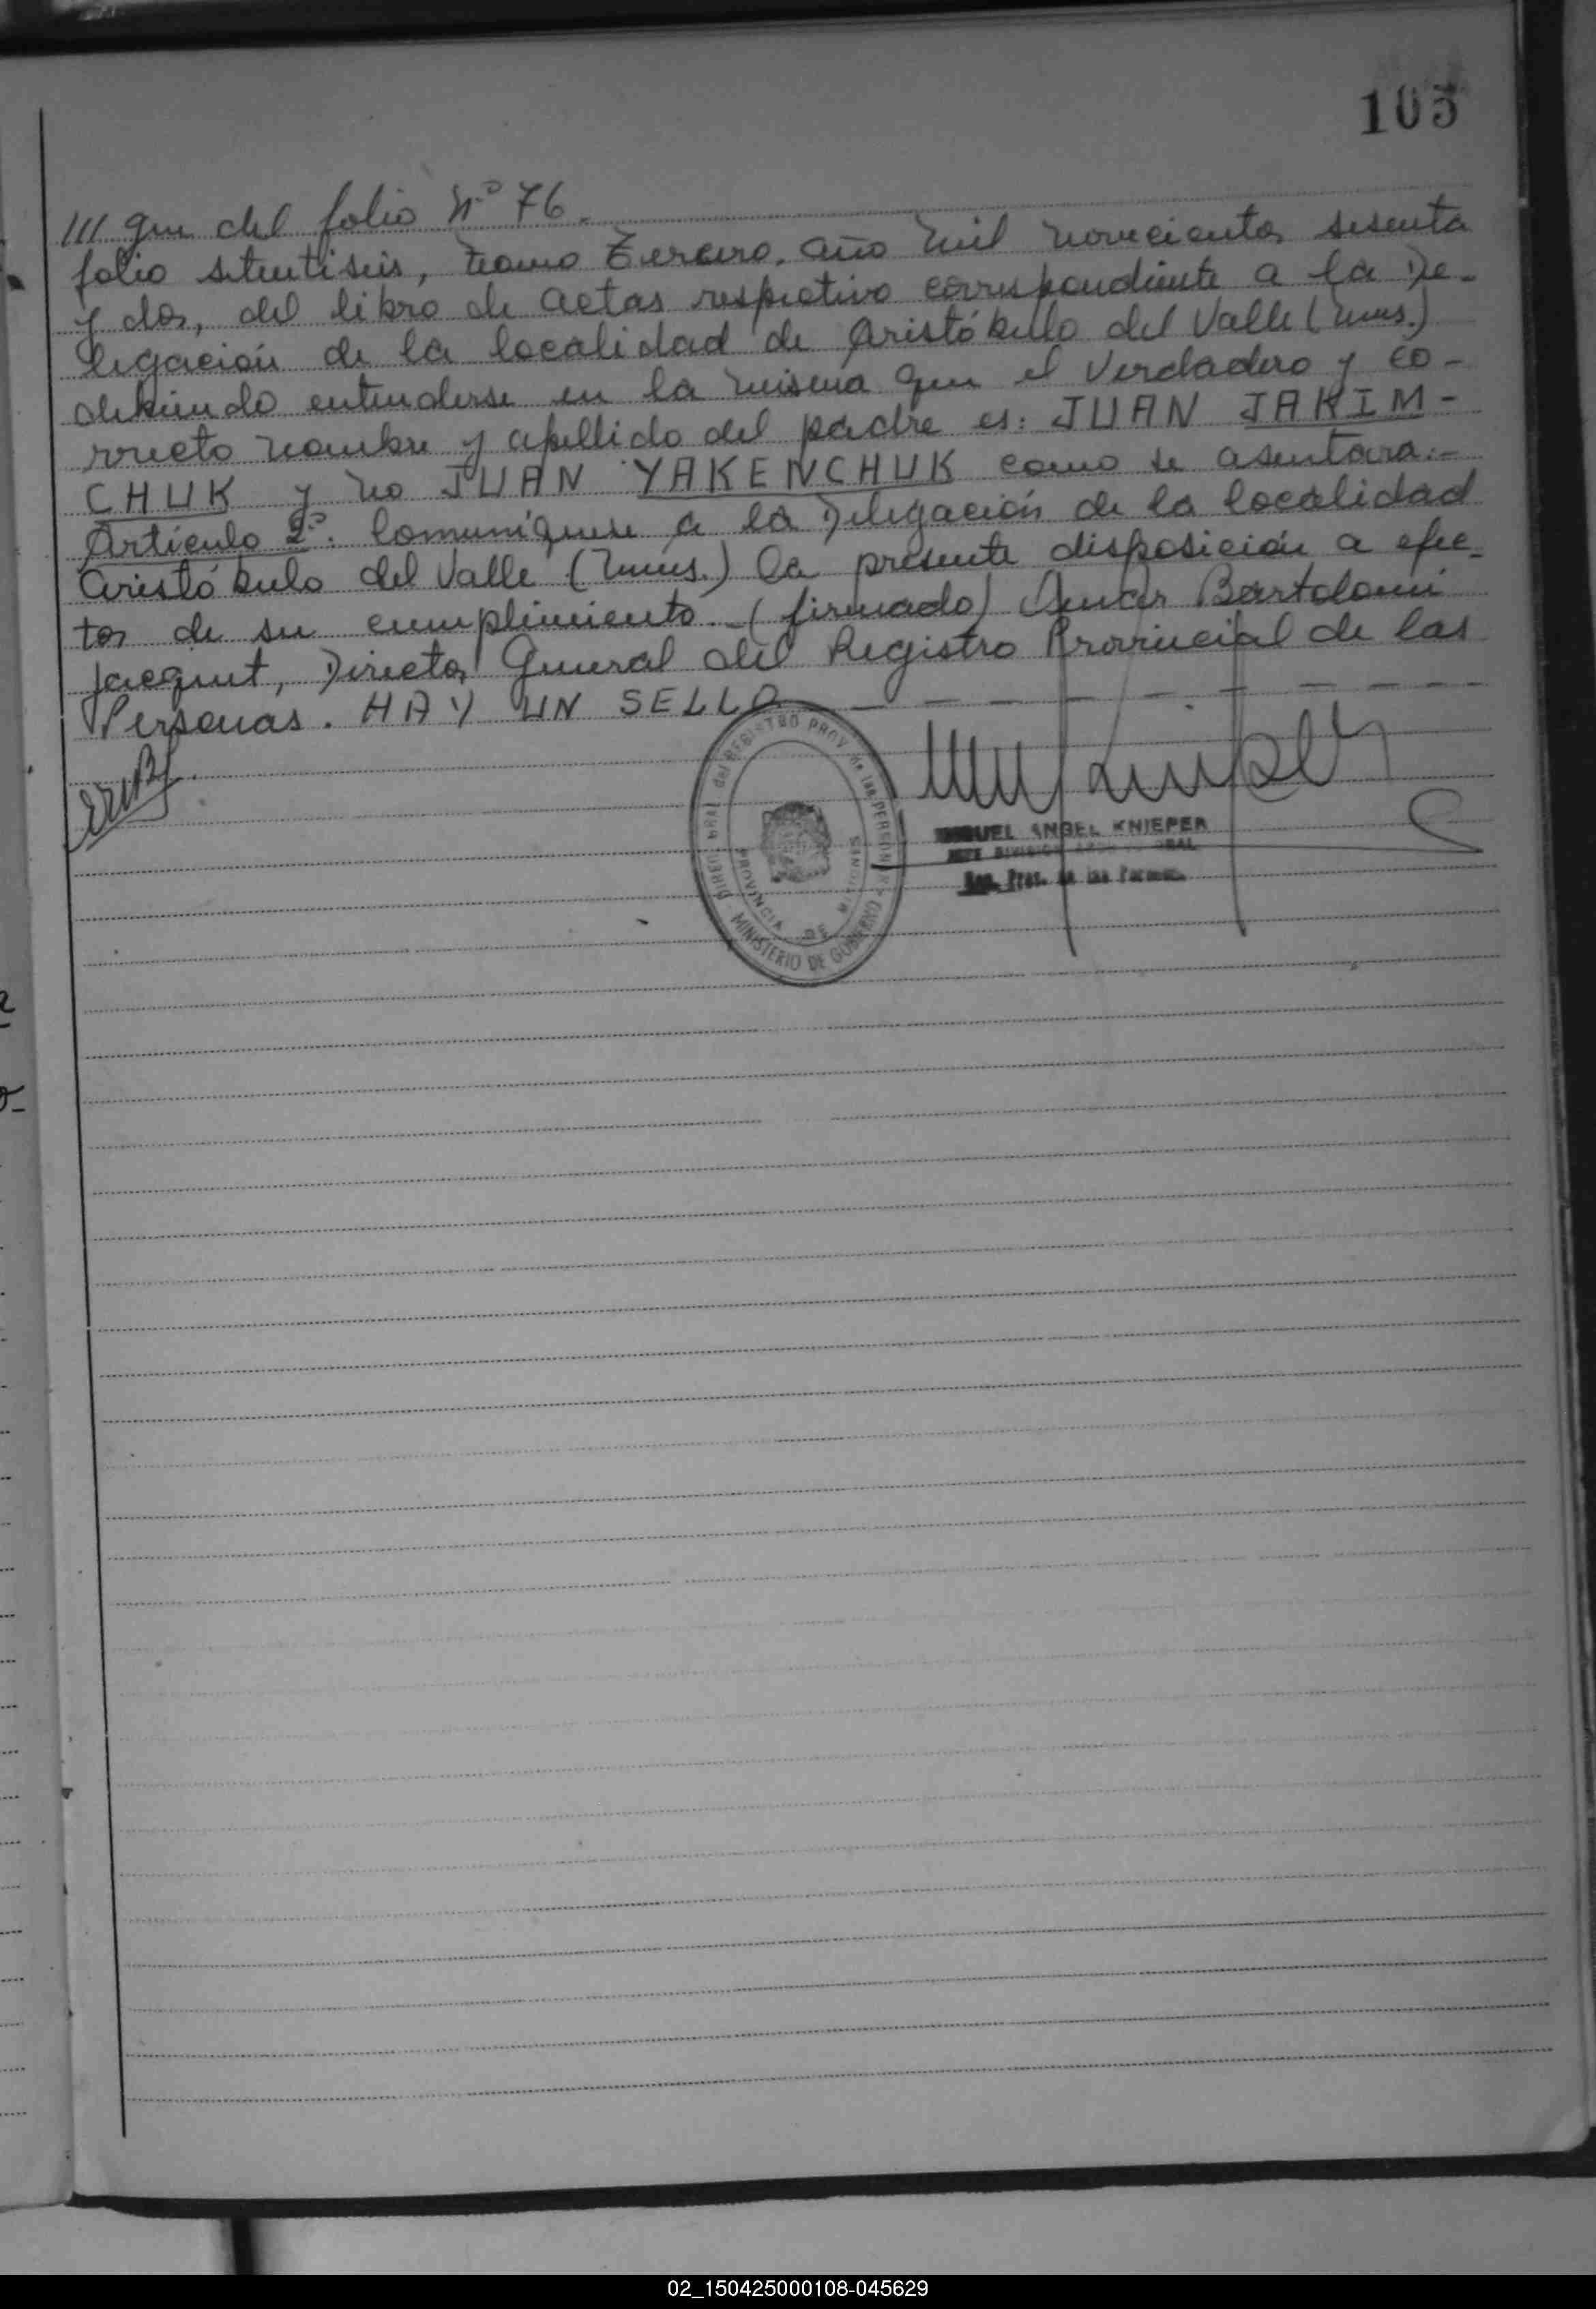 105
/// que del folio Nº 76.
folio setentiseis, tomo Tercero, año mil novecientos sesenta
y dos, del libro de actas respectivo correspondiente a la De-
legación de la localidad de Aristóbulo del Valle (Mnes.)
debiendo entenderse en la misma que el verdadero y co-
rrecto nombre y apellido del padre es: JUAN JAKIM-
CHUK y no JUAN YAKENCHUK como se asentara.-
Artículo 2º: Comuníquese a la Delegación de la localidad
Aristóbulo del Valle (Mnes.) la presente disposición a efec-
tos de su cumplimiento.- (firmado) Omar Bartolomé
Jacquet, Director General del Registro Provincial de las
Personas. HAY UN SELLO
DIREC. GRAL. del REGISTRO PROV. de las PERSONAS
MINISTERIO DE GOBIERNO
PROVINCIA DE MISIONES
MIGUEL ANGEL KNIEPER
JEFE DIVISION
Reg. Prov. de las Personas
02_150425000108-045629